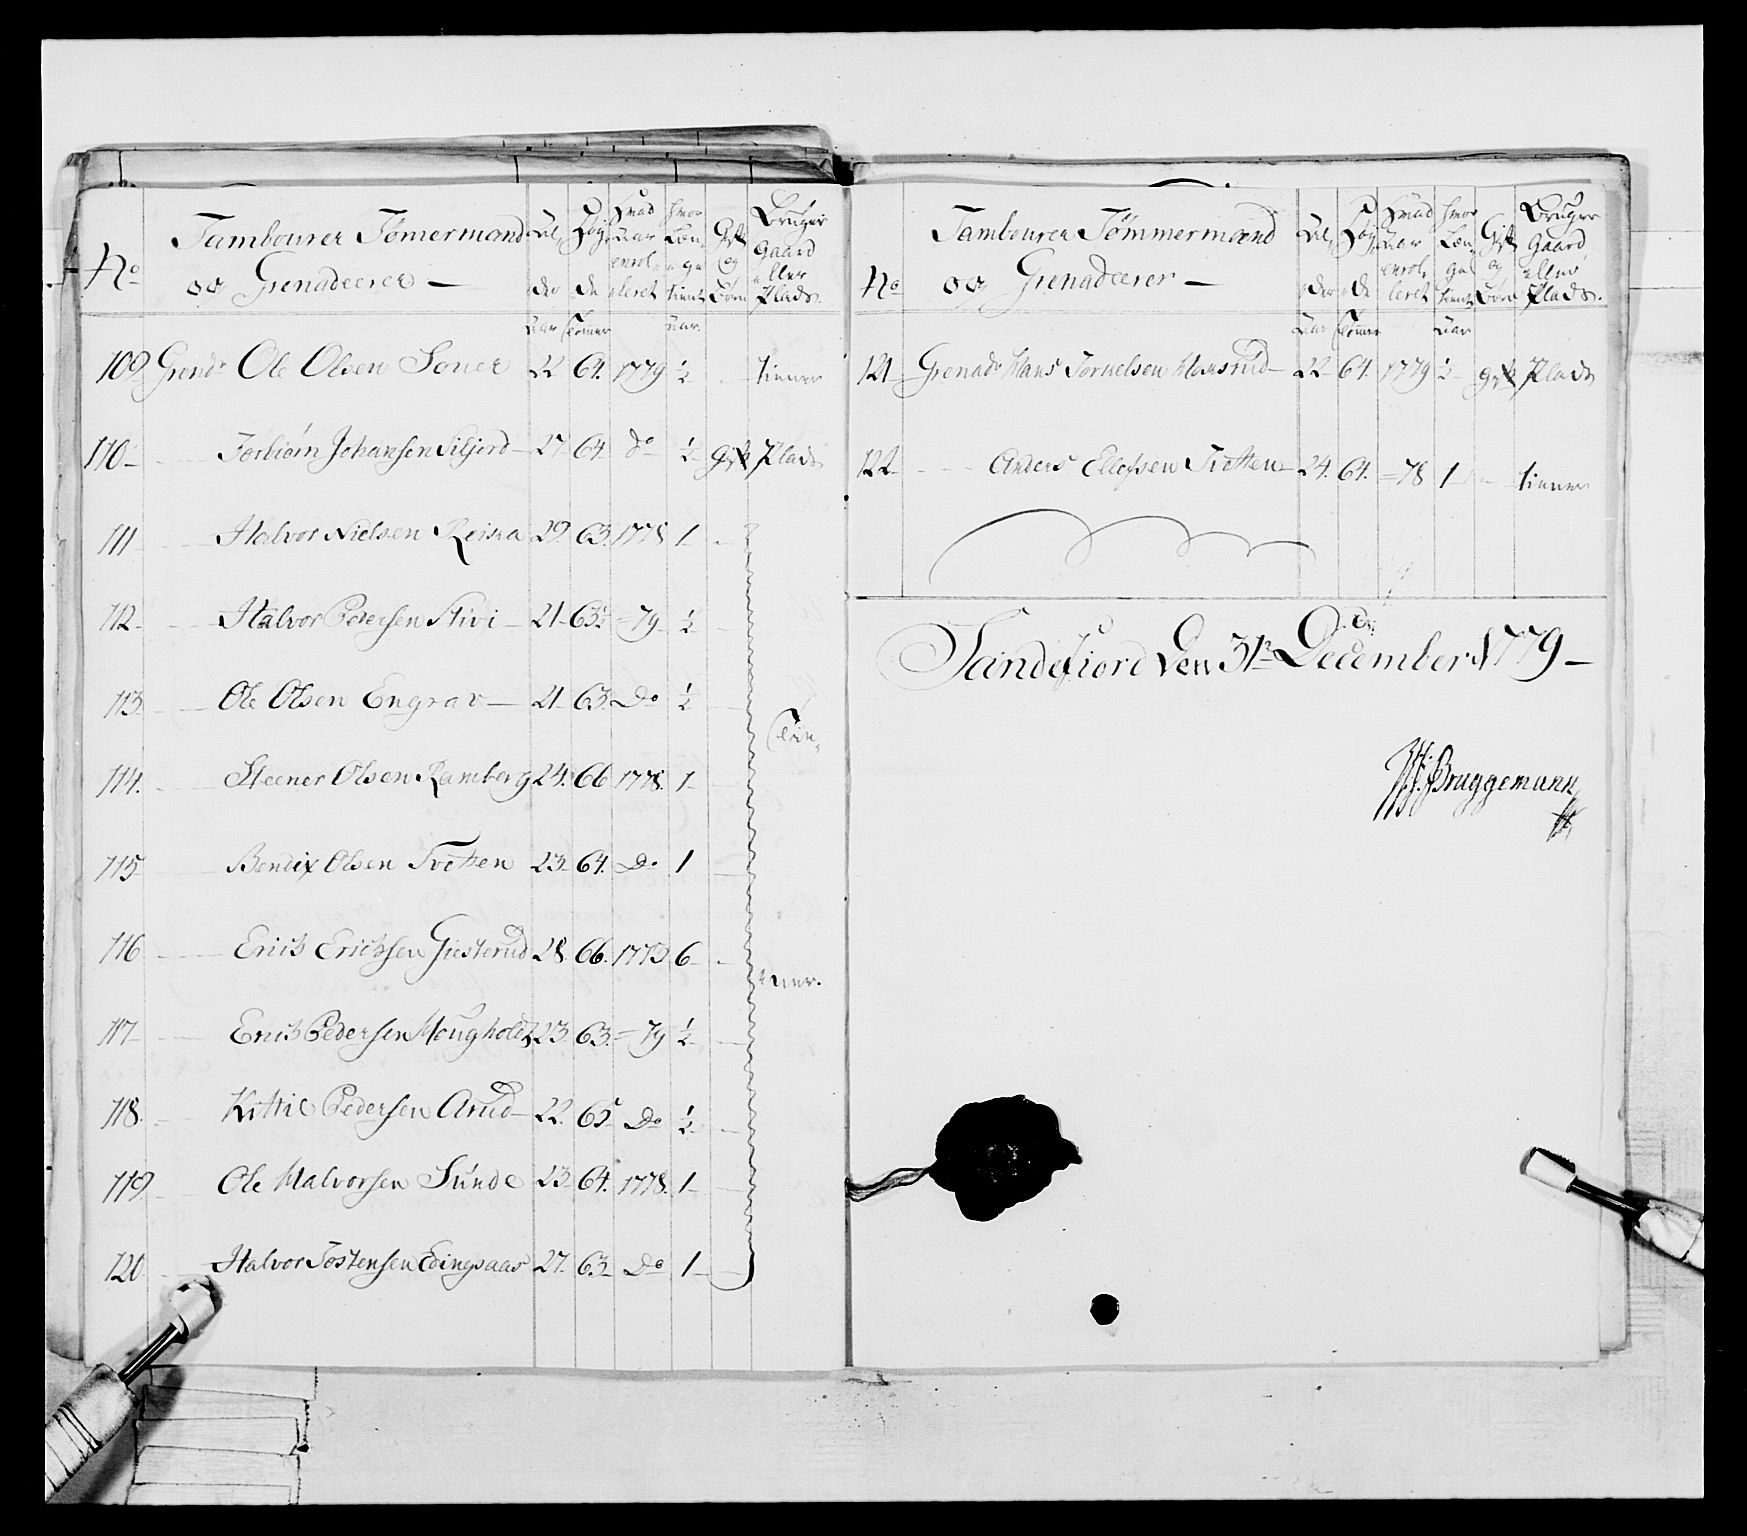 No
Tambourer Tømermænd
og Grenadeerer —
Al, der Aar
Høg, de Tomer
hvad Aar enrolleret
hvor Længe tient Aar
Gift og Børn
Bruger Gaard eller Plads
109 Grend. Ole Olsen Soner 22 64. 1779 ½ — tiener
110 — Torbiørn Johansen Siljord — 27 64 do ½ Gift Plads
111 — Halvor Nielsen Reisra 29. 63. 1778 1
112 — Halvor Pedersen Stivi — 21 63½ = 79. ½
113 — Ole Olsen Engrav — 21 63. Do ½
114. — Steener Olsen Ramberg 24. 66 1778. 1
115 — Bendix Olsen Tvetten 23. 64. Do 1
116 — Erich Erichsen Giesterud 28. 66. 1773 6
117 — Erich Pedersen Hougholdt 23 63. = 79 ½
118. — Kittil Pedersen Aruud — 22. 65 Do ½
119. Ole Halvorsen Sunde 23. 64. 1778. 1
120 — Halvor Tostensen Edingsaas 27. 63 Do 1
Tie„
„ner.
No
Tambourer Tømmermænd
og Grenadeerer —
Al, der Aar
Høg, de Tomer
hvad Aar enrolleret
hvor Længe tient Aar
Gift og Børn
Bruger Gaard eller Plads.
121 Grenadr Hans Torkelsen Moesrud — 22 64. 1779 ½ Gift Plads
122 — Anders Ellefsen Tvetten — 24. 64. = 78 1 — tiener
Sandefiord den 31te December 1779 —
Bruggemann